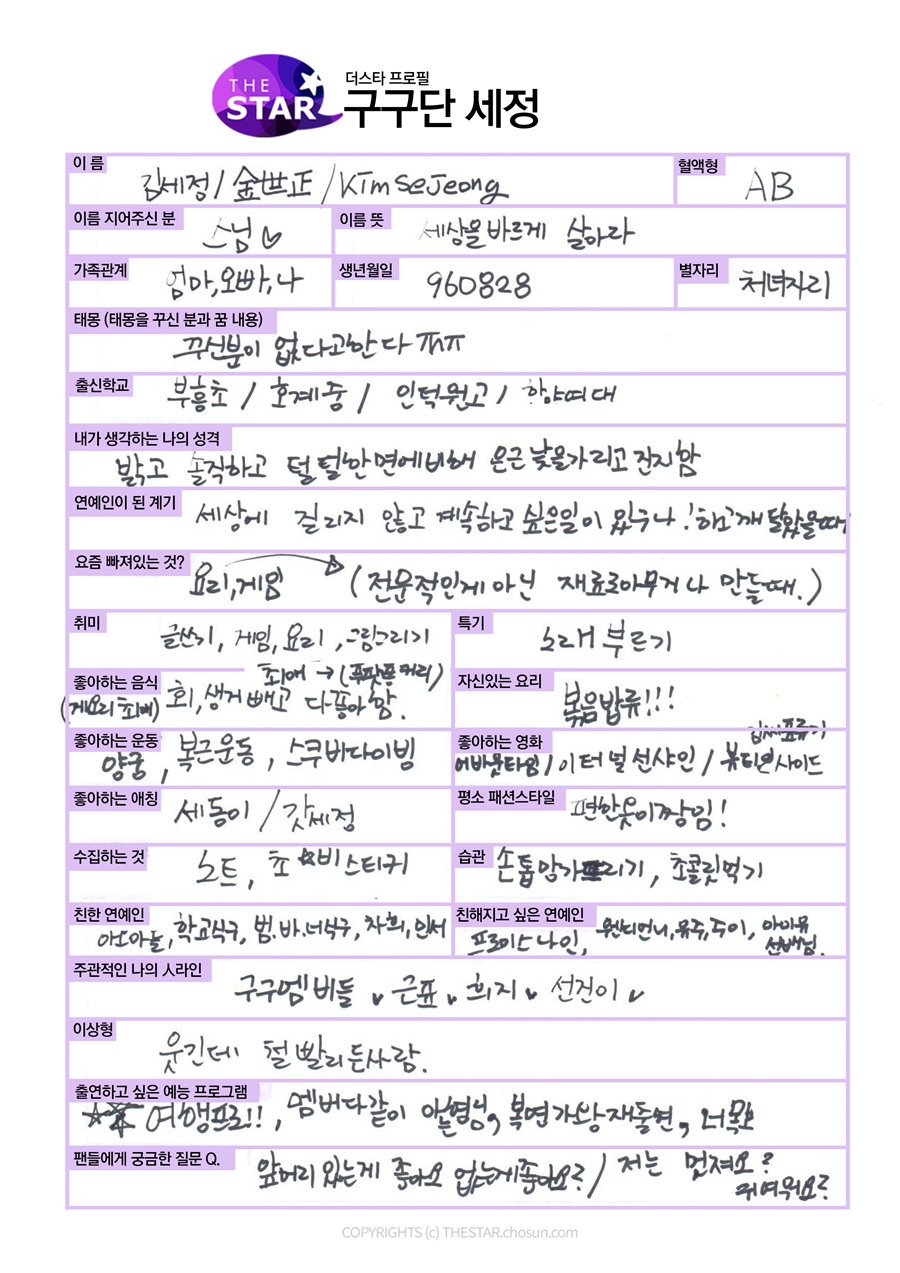 THE STAR
더스타 프로필
구구단 세정
이 름
김세정 / 金世正 / Kim Sejeong
혈액형
AB
이름 지어주신 분
스님♡
이름 뜻
세상을 바르게 살아라
가족관계
엄마, 오빠, 나
생년월일
960828
별자리
처녀자리
태몽 (태몽을 꾸신 분과 꿈 내용)
꾸신분이 없다고한다 ㅠㅠ
출신학교
부흥초 / 호계중 / 인덕원고 / 한양여대
내가 생각하는 나의 성격
밝고 솔직하고 털털한면에비해 은근 낯을가리고 진지함
연예인이 된 계기
세상에 질리지 않고 계속하고 싶은일이 있구나! 하고 깨달았을때!
요즘 빠져있는 것?
요리, 게임 (전문적인게 아닌 재료로아무거나 만들때.)
취미
글쓰기, 게임, 요리, 그림그리기
특기
노래 부르기
좋아하는 음식
최애 → (푸팟퐁커리)
(게요리 최애) 회, 생거 빼고 다좋아함.
자신있는 요리
볶음밥류!!!
좋아하는 운동
양궁, 복근운동, 스쿠바다이빙
좋아하는 영화
김씨표류기
어바웃타임 / 이터널선샤인 / 뷰티인사이드
좋아하는 애칭
세동이 / 갓세정
평소 패션스타일
편한옷이짱임!
수집하는 것
노트, 초☆비스티커
습관
손톱암가프리기, 초콜릿먹기
친한 연예인
아이오아이들, 학교식구, 범.바.너식구, 차희, 인서
친해지고 싶은 연예인
프로미스 나인, 원더언니, 유주, 주이, 아이유 선배님.
주관적인 나의 人라인
구구멤버들, 근표, 희지, 선진이
이상형
웃긴데 철 빨리든사람.
출연하고 싶은 예능 프로그램
☆☆ 여행프로!!, 멤버다같이 아는형님, 복면가왕재출연, 너목보
팬들에게 궁금한 질문 Q.
앞머리 있는게 좋아요 없는게좋아요? / 저는 멋져요?
귀여워요?
COPYRIGHTS (c) THESTAR.chosun.com